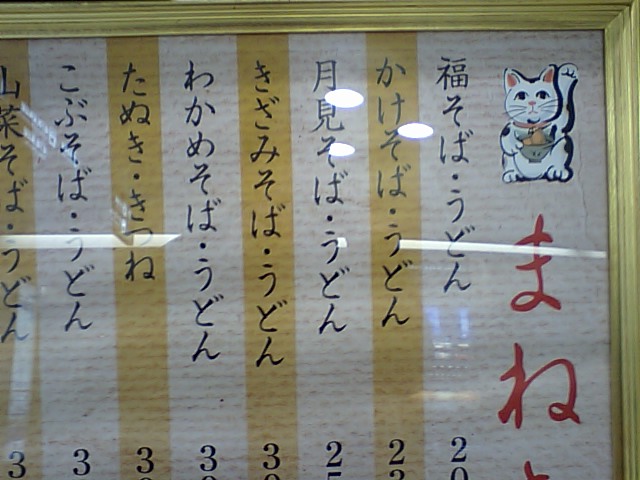 まね
福そば・うどん 20
かけそば・うどん 22
月見そば・うどん 25
きざみそば・うどん 3
わかめそば・うどん 3
たぬき・きつね 3
こぶそば・うどん 3
山菜そば・うどん 3